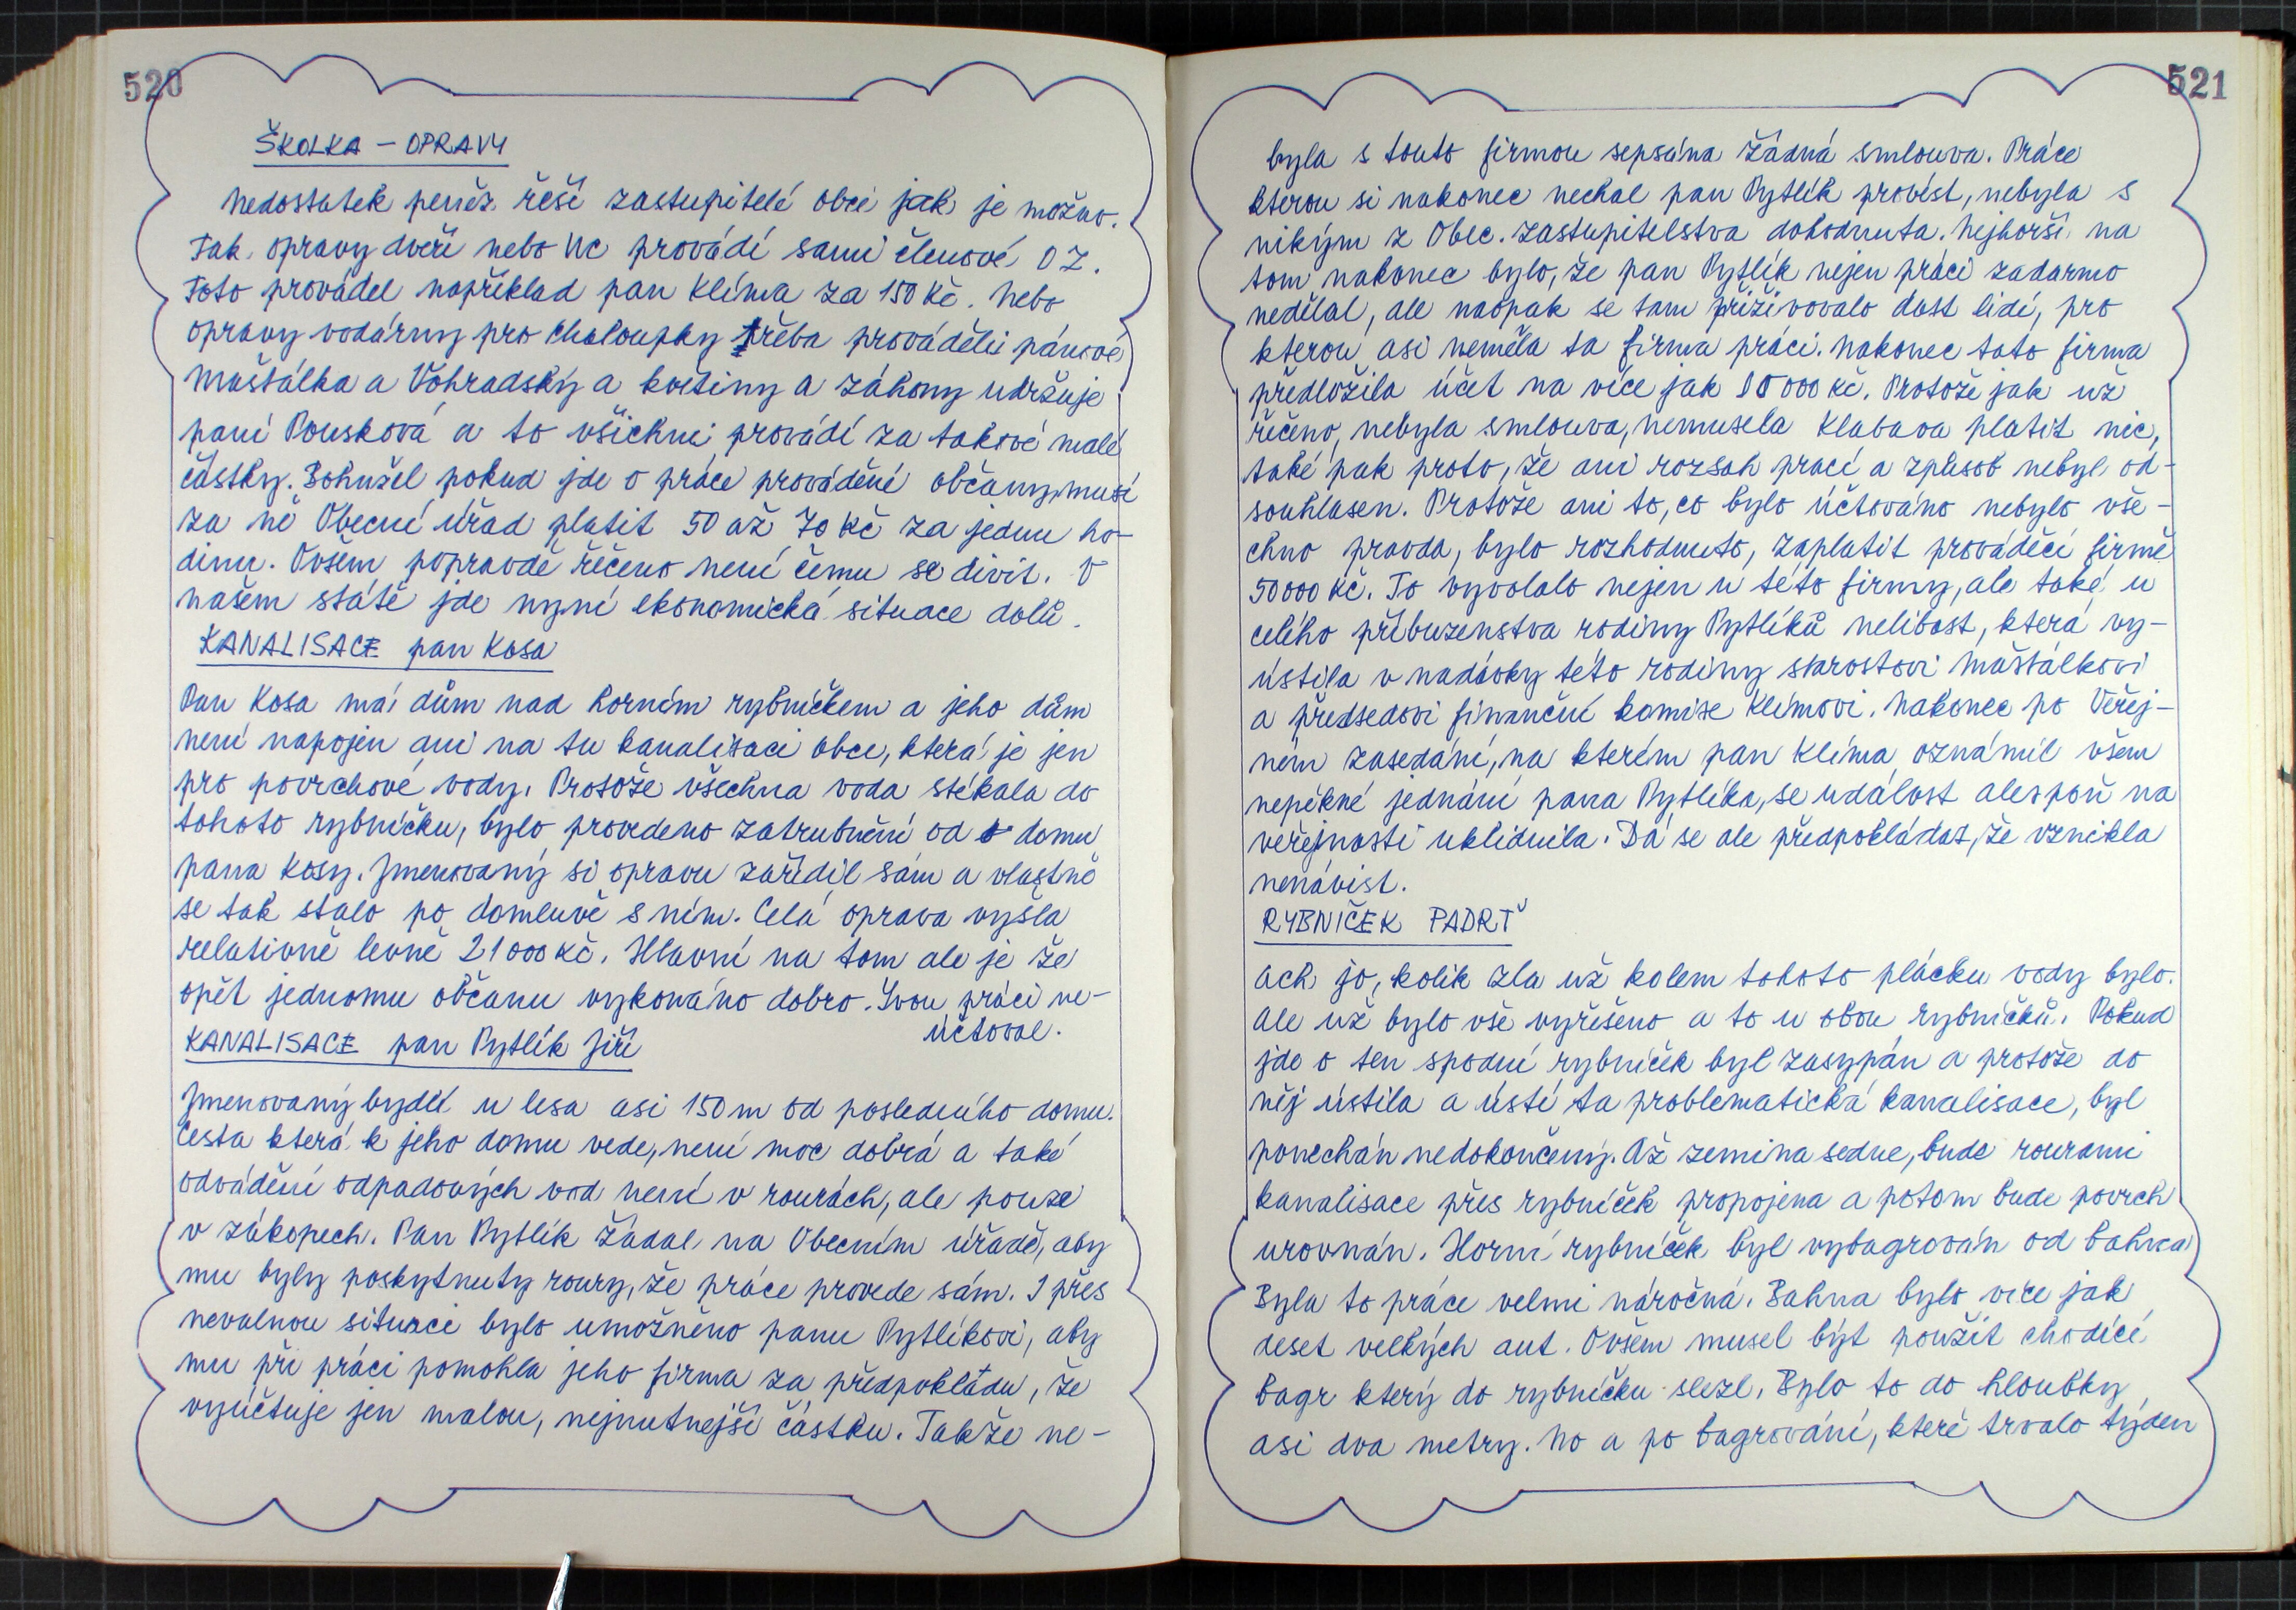 520
ŠKOLKA – OPRAVY
Nedostatek peněz řeší zastupitelé obci jak je možno.
Tak opravy dveří nebo WC provádí sami členové OZ.
Toto prováděl například pan Klíma za 150 Kč. Nebo
opravy vodárny pro Chaloupky třeba prováděli pánové
Maštálka a Vohradský a květiny a záhony udržuje
paní Pousková a to všichni provádí za takové malé
částky. Bohužel pokud jde o práce provádění občany, musí
za ně Obecní úřad platit 50 až 70 Kč za jednu ho-
dinu. Ovšem popravdě řečeno není čemu se divit. V
našem státě jde nyní ekonomická situace dolů.
KANALISACE pan Kosa
Pan Kosa má dům nad horním rybníčkem a jeho dům
není napojen ani na tu kanalisaci obce, která je jen
pro povrchové vody. Protože všechna voda stékala do
tohoto rybníčku, bylo provedeno zatrubnění od domu
pana Kosy. Jmenovaný si opravu zařídil sám a vlastně
se tak stalo po domluvě s ním. Celá oprava vyšla
relativně levně 21000 Kč. Hlavní na tom ale je že
opět jednomu občanu vykonáno dobro. Svou práci ne-
účtoval.
KANALISACE pan Pytlík Jiří
Jmenovaný bydlí u lesa asi 150 m od posledního domu.
Cesta která k jeho domu vede, není moc dobrá a také
odvádění odpadových vod není v rourách, ale pouze
v zákopech. Pan Pytlík žádal na Obecním úřadě, aby
mu byly poskytnuty roury, že práce provede sám. I přes
nevalnou situaci bylo umožněno panu Pytlíkovi, aby
mu při práci pomohla jeho firma za předpokladu, že
vyúčtuje jen malou, nejnutnější částku. Takže ne-
521
byla s touto firmou sepsána žádná smlouva. Práce
kterou si nakonec nechal pan Pytlík provést, nebyla s
nikým z Obec. zastupitelstva dohodnuta. Nejhorší na
tom nakonec bylo, že pan Pytlík nejen práci zadarmo
nedělal, ale naopak se tam přiživovalo dost lidí, pro
kterou asi neměla ta firma práci. Nakonec tato firma
předložila účet na více jak 000 Kč. Protože jak už
řečeno, nebyla smlouva, nemusela Klabava platit nic,
také pak proto, že ani rozsah prací a způsob nebyl od-
souhlasen. Protože ani to, co bylo účtováno nebylo vše-
chno pravda, bylo rozhodnuto, zaplatit prováděcí firmě
50000 Kč. To vyvolalo nejen u této firmy, ale také u
celého příbuzenstva rodiny Pytlíků nelibost, která vy-
ústila v nadávky této rodiny starostovi Maštálkovi
a předsedovi finanční komise Klímovi. Nakonec po Veřej-
ném zasedání, na kterém pan Klíma oznámil všem
nepěkné jednání pana Pytlíka, se událost alespoň na
veřejnosti uklidnila. Dá se ale předpokládat, že vznikla
nenávist.
RYBNÍČEK PADRŤ
Ach jo, kolik zla už kolem tohoto plácku vody bylo.
Ale už bylo vše vyřešeno a to u obou rybníčků. Pokud
jde o ten spodní rybníček byl zasypán a protože do
něj ústila a ústí ta problematická kanalisace, byl
ponechán nedokončený. Až zemina sedne, bude rourami
kanalisace přes rybníček propojena a potom bude povrch
urovnán. Horní rybníček byl vybagrován od bahna
Byla to práce velmi náročná. Bahna bylo více jak
deset velkých aut. Ovšem musel být použit chodící
bagr který do rybníčku slezl. Bylo to do hloubky
asi dva metry. No a po bagrování, které trvalo týden